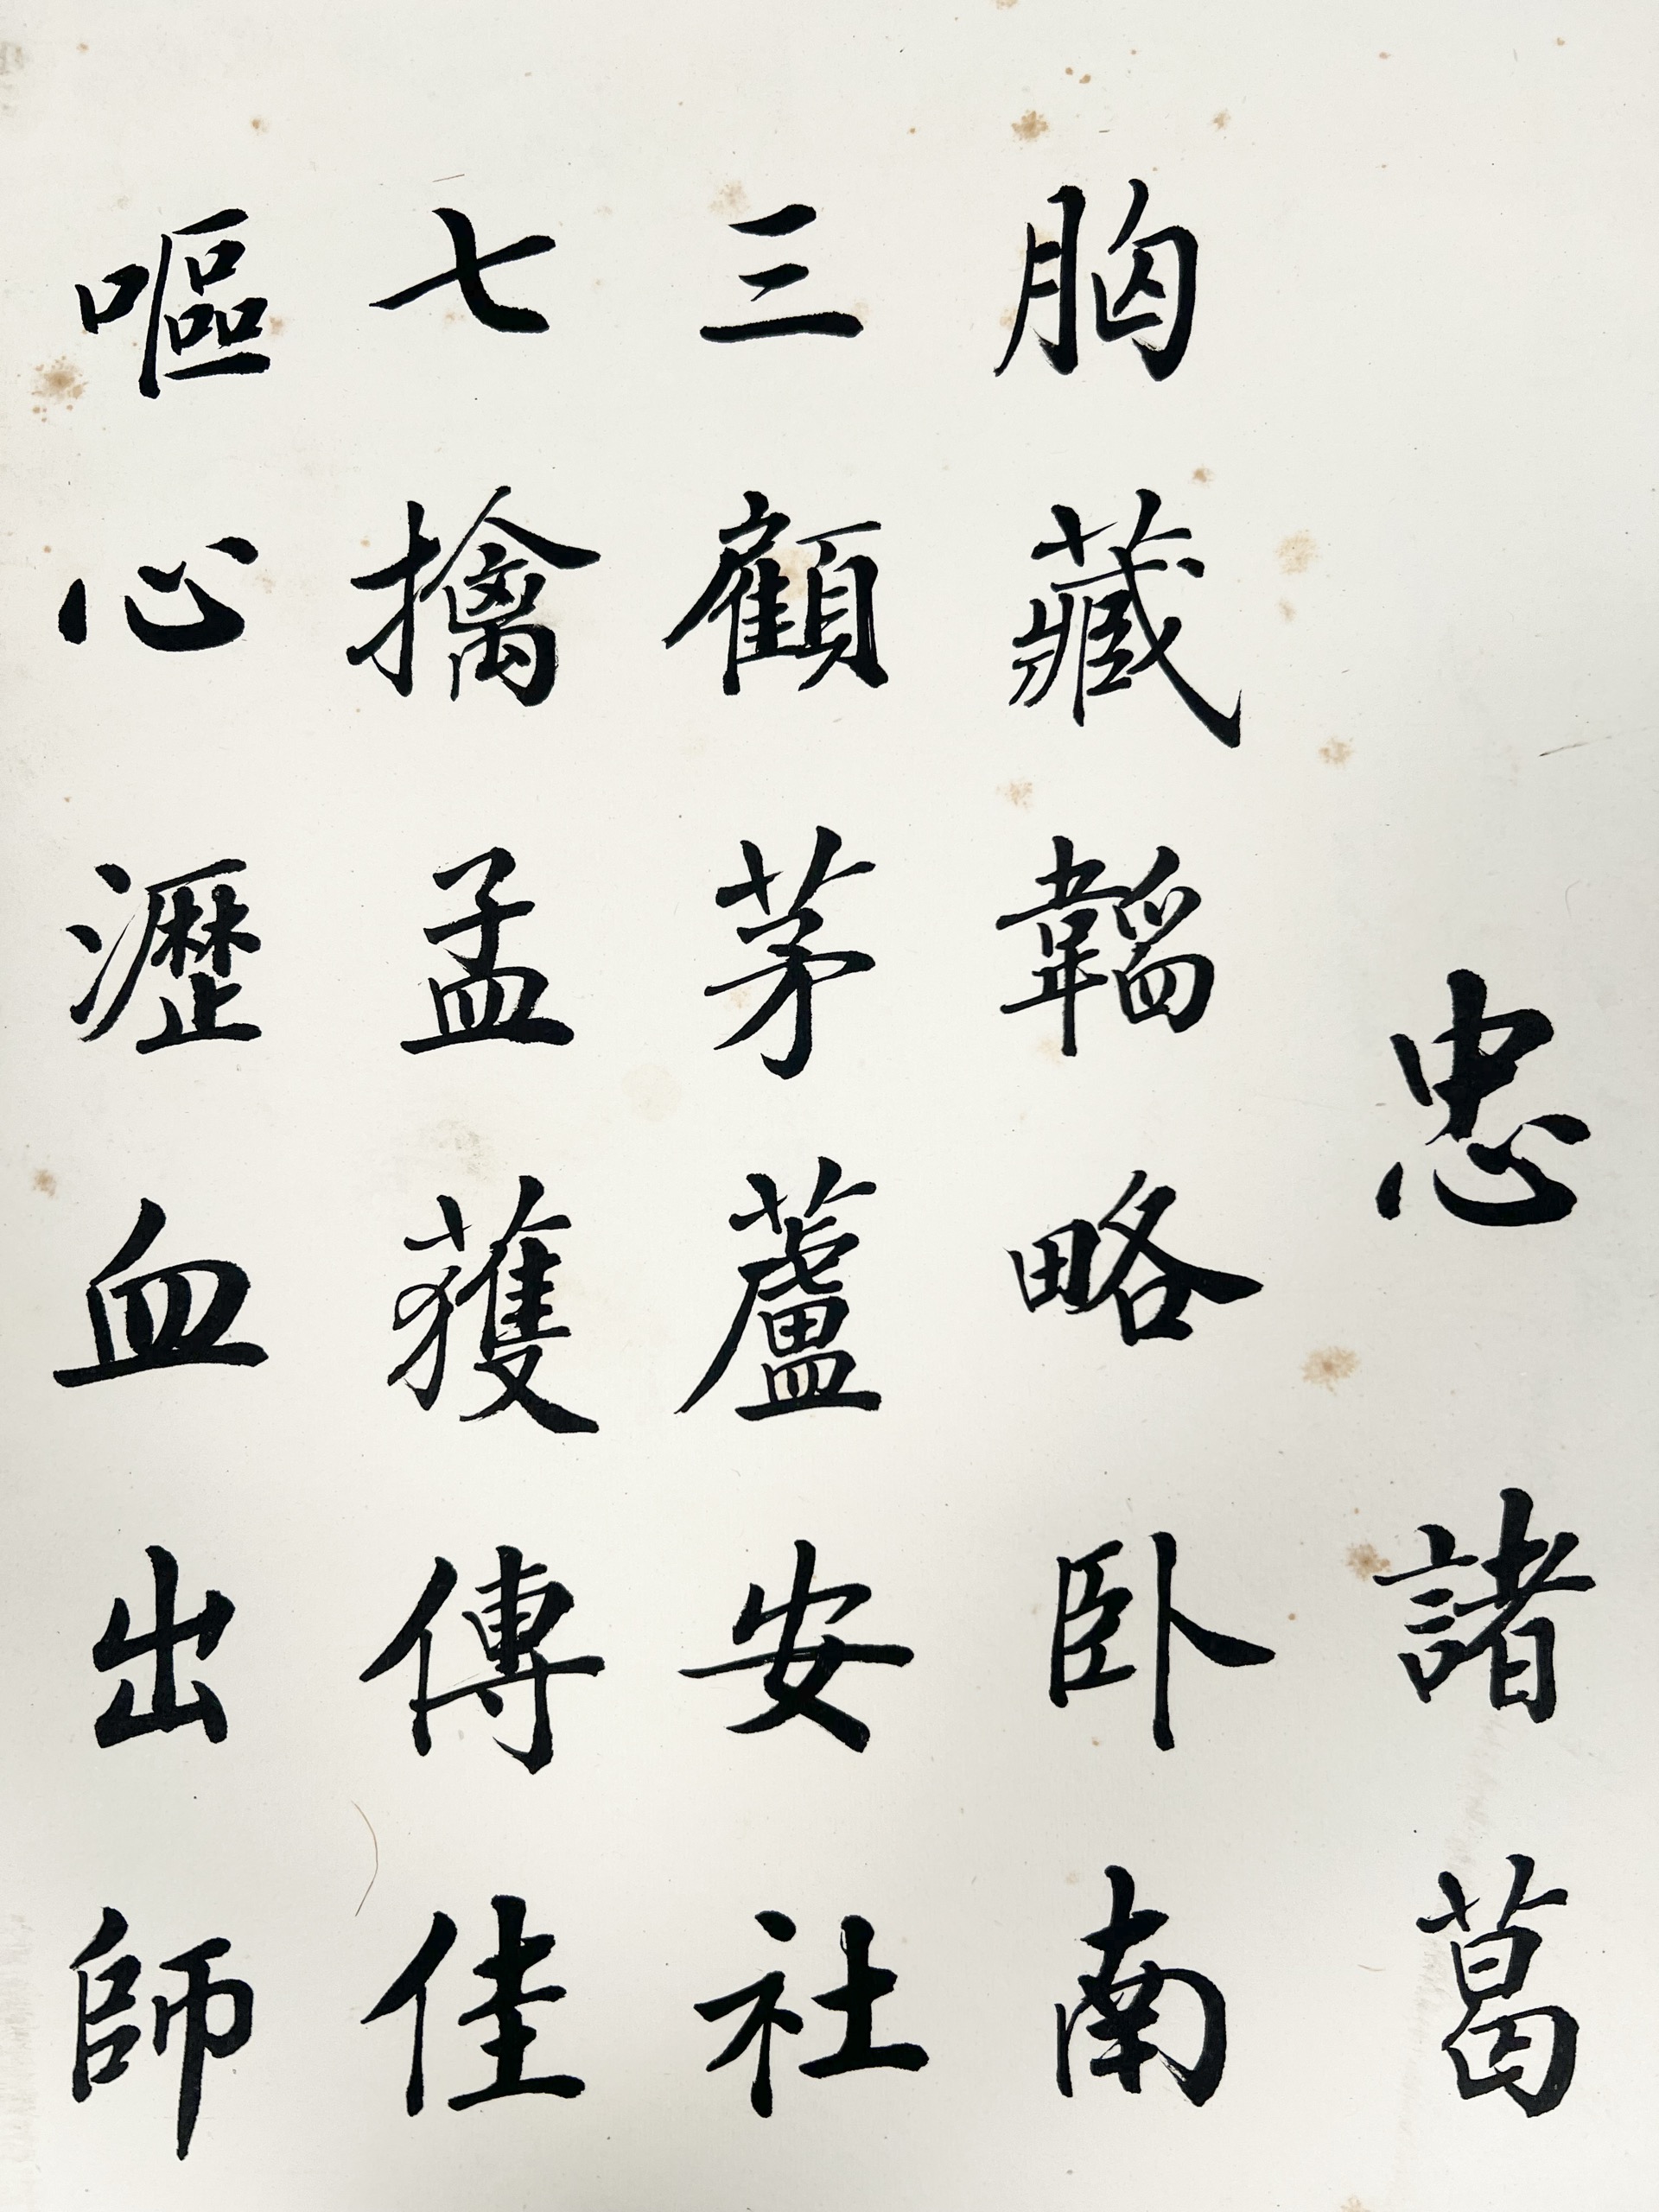 忠諸葛
胸藏韜略卧南
三顧茅蘆安社
七擒孟獲傳佳
嘔心瀝血出師